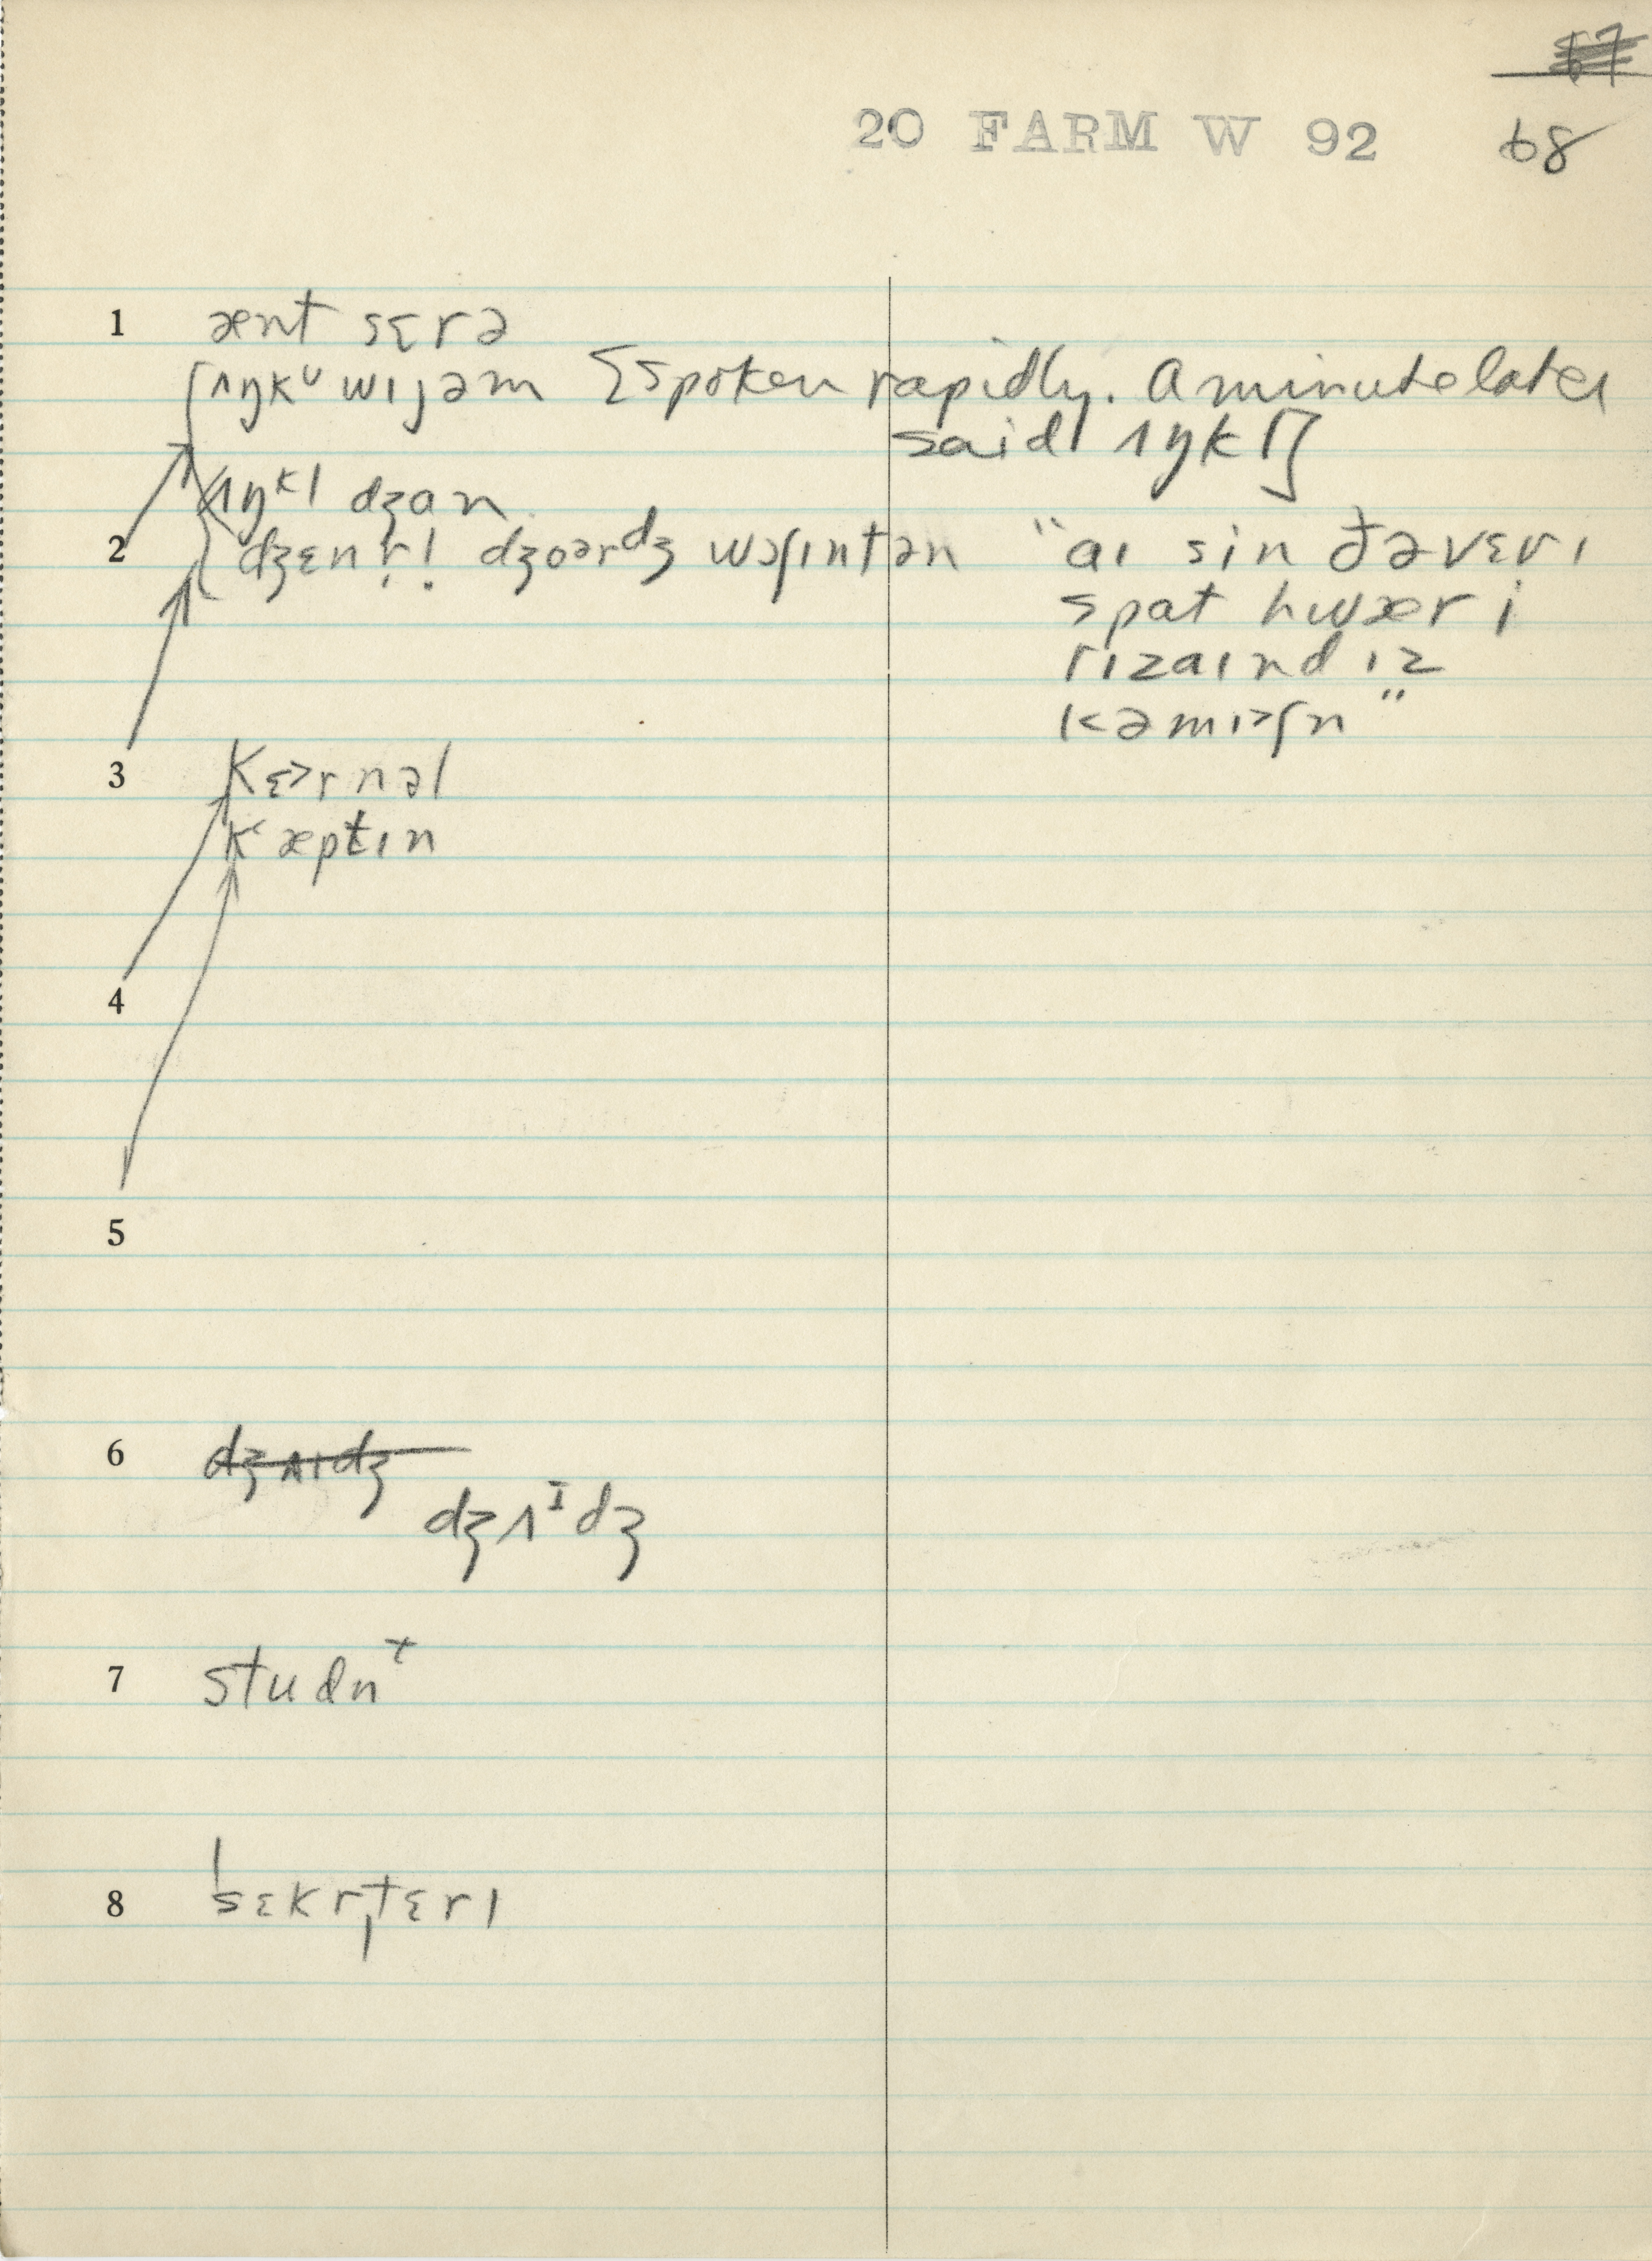 68
20 FARM W 92
1 ænt sɛrə
ʌŋkᵁ wɪjəm [spoken rapidly. A minute later
said ʌŋkl]
ʌŋᵏl dʒɑn
2 dʒɛnr̩l dʒoərdʒ wɔʃɪntən "aɪ sin ðə vɛrɪ
spɑt hwær i
rizaɪnd ɪz
kəmɪʃn"
3 kɜrnəl
kʻæptɪn
4
5
6 dʒʌɪdʒ
dʒʌᴵdʒ
7 studnᵗ
8 ˈsɛkrˌtɛrɪ